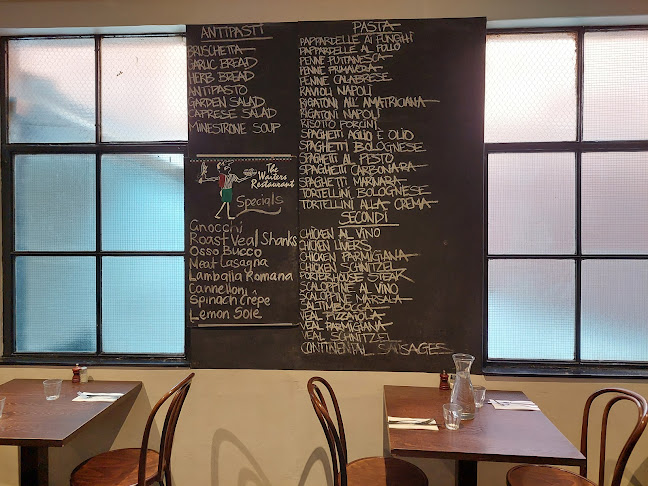 ANTIPASTI
BRUSCHETTA
GARLIC BREAD
HERB BREAD
ANTIPASTO
GARDEN SALAD
CAPRESE SALAD
MINESTRONE SOUP
The
Waiters
Restaurant
Specials
Gnocchi
Roast Veal Shanks
Osso Bucco
Meat Lasagna
Lamballa Romana
Cannelloni
Spinach Crêpe
Lemon Sole
PASTA
PAPPARDELLE AI FUNGHI
PAPPARDELLE AL POLLO
PENNE PUTTANESCA
PENNE PRIMAVERA
PENNE CALABRESE
RAVIOLI NAPOLI
RIGATONI ALL' AMATRICIANA
RIGATONI NAPOLI
RISOTTO PORCINI
SPAGHETTI AGLIO E OLIO
SPAGHETTI BOLOGNESE
SPAGHETTI AL PESTO
SPAGHETTI CARBONARA
SPAGHETTI MARINARA
TORTELLINI BOLOGNESE
TORTELLINI ALLA CREMA
SECONDI
CHICKEN AL VINO
CHICKEN LIVERS
CHICKEN PARMIGIANA
CHICKEN SCHNITZEL
PORTERHOUSE STEAK
SCALOPPINE AL VINO
SCALOPPINE MARSALA
SALTIMBOCCA
VEAL PIZZAIOLA
VEAL PARMIGIANA
VEAL SCHNITZEL
CONTINENTAL SAUSAGES